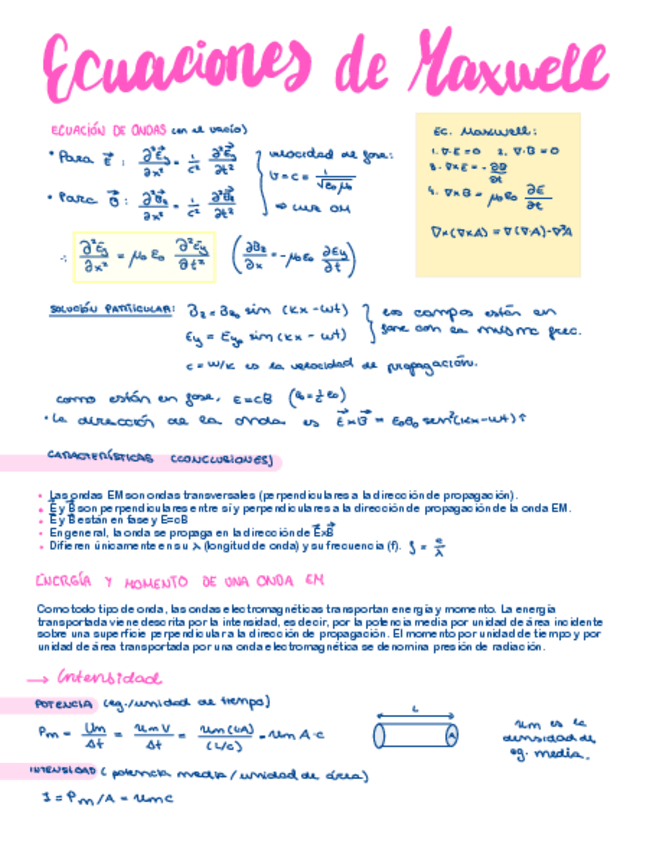 Ecuaciones de Maxwell
ECUACIÓN DE ONDAS (en el vacío)
• Para E⃗ : ∂²E⃗y/∂x² = 1/c² ∂²E⃗y/∂t²
• Para B⃗ : ∂²B⃗z/∂x² = 1/c² ∂²B⃗z/∂t²
velocidad de fase:
v = c = 1/√(ε₀μ₀)
⇒ luz OM
EC. Maxwell:
1. ∇·E = 0 2. ∇·B = 0
3. ∇×E = - ∂B/∂t
4. ∇×B = μ₀ε₀ ∂E/∂t
∇×(∇×A) = ∇(∇·A)-∇²A
∴ ∂²E⃗y/∂x² = μ₀ ε₀ ∂²E⃗y/∂t² (∂Bz/∂x = -μ₀ε₀ ∂Ey/∂t)
SOLUCIÓN PARTICULAR: Bz = Bz₀ sin (kx-wt)
Ey = Ey₀ sin (kx - wt)
los campos están en
fase con la misma frec.
c = w/k es la velocidad de propagación.
como están en fase, E=cB (B₀=1/c E₀)
• La dirección de la onda es E⃗×B⃗ = E₀B₀ sen²(kx-wt) î
CARACTERÍSTICAS (CONCLUSIONES)
• Las ondas EM son ondas transversales (perpendiculares a la dirección de propagación).
• E⃗ y B⃗ son perpendiculares entre sí y perpendiculares a la dirección de propagación de la onda EM.
• E⃗ y B⃗ están en fase y E=cB
• En general, la onda se propaga en la dirección de E⃗xB⃗
• Difieren únicamente en su λ (longitud de onda) y su frecuencia (f). f = c/λ
ENERGÍA Y MOMENTO DE UNA ONDA EM
Como todo tipo de onda, las ondas electromagnéticas transportan energía y momento. La energía
transportada viene descrita por la intensidad, es decir, por la potencia media por unidad de área incidente
sobre una superficie perpendicular a la dirección de propagación. El momento por unidad de tiempo y por
unidad de área transportada por una onda electromagnética se denomina presión de radiación.
→ Intensidad
POTENCIA (eg./unidad de tiempo)
Pm = Um/Δt = um V/Δt = um(LA)/(L/c) = um A·c
L
A
um es la
densidad de
eg. media.
INTENSIDAD (potencia media/unidad de área)
I = Pm/A = umc